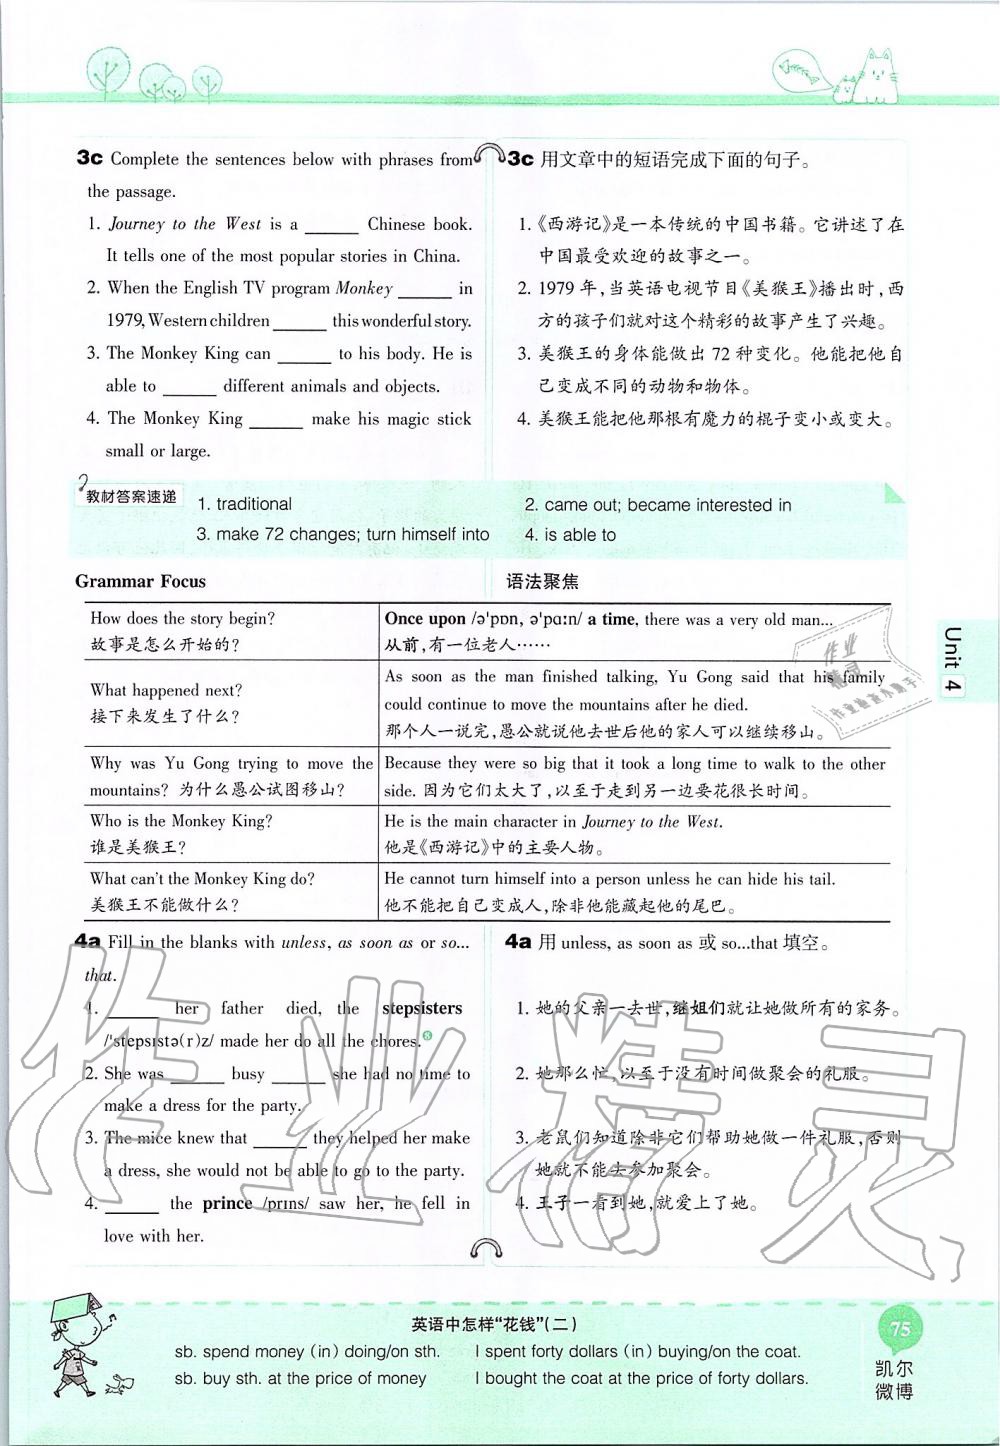 3c Complete the sentences below with phrases from
the passage.
1. Journey to the West is a ______ Chinese book.
It tells one of the most popular stories in China.
2. When the English TV program Monkey ______ in
1979, Western children ______ this wonderful story.
3. The Monkey King can ______ to his body. He is
able to ______ different animals and objects.
4. The Monkey King ______ make his magic stick
small or large.
3c 用文章中的短语完成下面的句子。
1.《西游记》是一本传统的中国书籍。它讲述了在
中国最受欢迎的故事之一。
2. 1979 年,当英语电视节目《美猴王》播出时,西
方的孩子们就对这个精彩的故事产生了兴趣。
3. 美猴王的身体能做出 72 种变化。他能把他自
己变成不同的动物和物体。
4. 美猴王能把他那根有魔力的棍子变小或变大。
教材答案速递
1. traditional
2. came out; became interested in
3. make 72 changes; turn himself into
4. is able to
Grammar Focus
语法聚焦
How does the story begin?
故事是怎么开始的?
Once upon /ə'pɒn, ə'pɑːn/ a time, there was a very old man...
从前,有一位老人……
What happened next?
接下来发生了什么?
As soon as the man finished talking, Yu Gong said that his family
could continue to move the mountains after he died.
那个人一说完,愚公就说他去世后他的家人可以继续移山。
Why was Yu Gong trying to move the
mountains? 为什么愚公试图移山?
Because they were so big that it took a long time to walk to the other
side. 因为它们太大了,以至于走到另一边要花很长时间。
Who is the Monkey King?
谁是美猴王?
He is the main character in Journey to the West.
他是《西游记》中的主要人物。
What can't the Monkey King do?
美猴王不能做什么?
He cannot turn himself into a person unless he can hide his tail.
他不能把自己变成人,除非他能藏起他的尾巴。
Unit 4
4a Fill in the blanks with unless, as soon as or so...
that.
1. ______ her father died, the stepsisters
/'stepsɪstə(r)z/ made her do all the chores.
2. She was ______ busy ______ she had no time to
make a dress for the party.
3. The mice knew that ______ they helped her make
a dress, she would not be able to go to the party.
4. ______ the prince /prɪns/ saw her, he fell in
love with her.
4a 用 unless, as soon as 或 so...that 填空。
1. 她的父亲一去世,继姐们就让她做所有的家务。
2. 她那么忙,以至于没有时间做聚会的礼服。
3. 老鼠们知道除非它们帮助她做一件礼服,否则
她就不能去参加聚会。
4. 王子一看到她,就爱上了她。
作业精灵
作业
精灵
英语中怎样“花钱”(二)
sb. spend money (in) doing/on sth.
I spent forty dollars (in) buying/on the coat.
sb. buy sth. at the price of money
I bought the coat at the price of forty dollars.
75
凯尔
微博